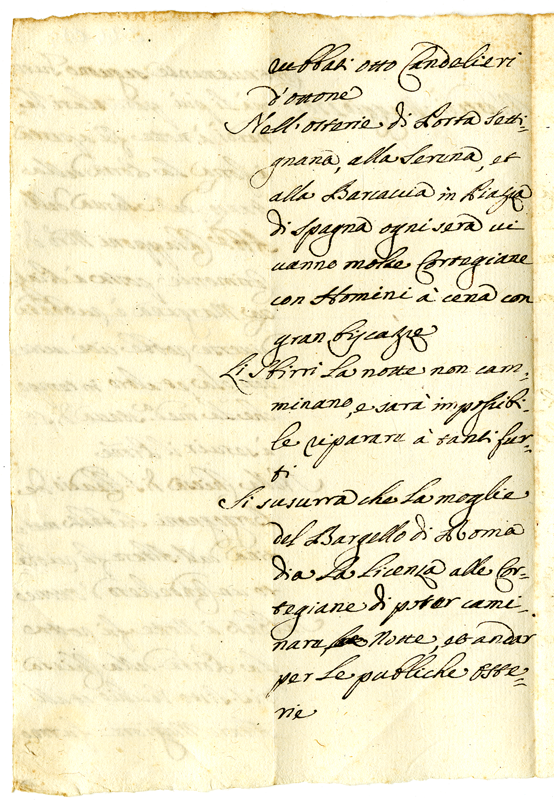 rubbati otto Candelieri
d'ottone
Nell'osterie di Porta Setti-
gnana, alla Serena, et
alla Barcaccia in Piazza
di Spagna ogni sera vi
vanno molte Cortegiane
con Homini à cena con
gran biscazze
Li Sbirri la notte non cam-
minano, e sarà impossibi-
le riparare à tanti fur-
ti
Si susurra che la moglie
del Bargello di Roma
dia la licenza alle Cor-
tegiane di poter cami-
nare Notte, et andar
per le publiche oste-
rie